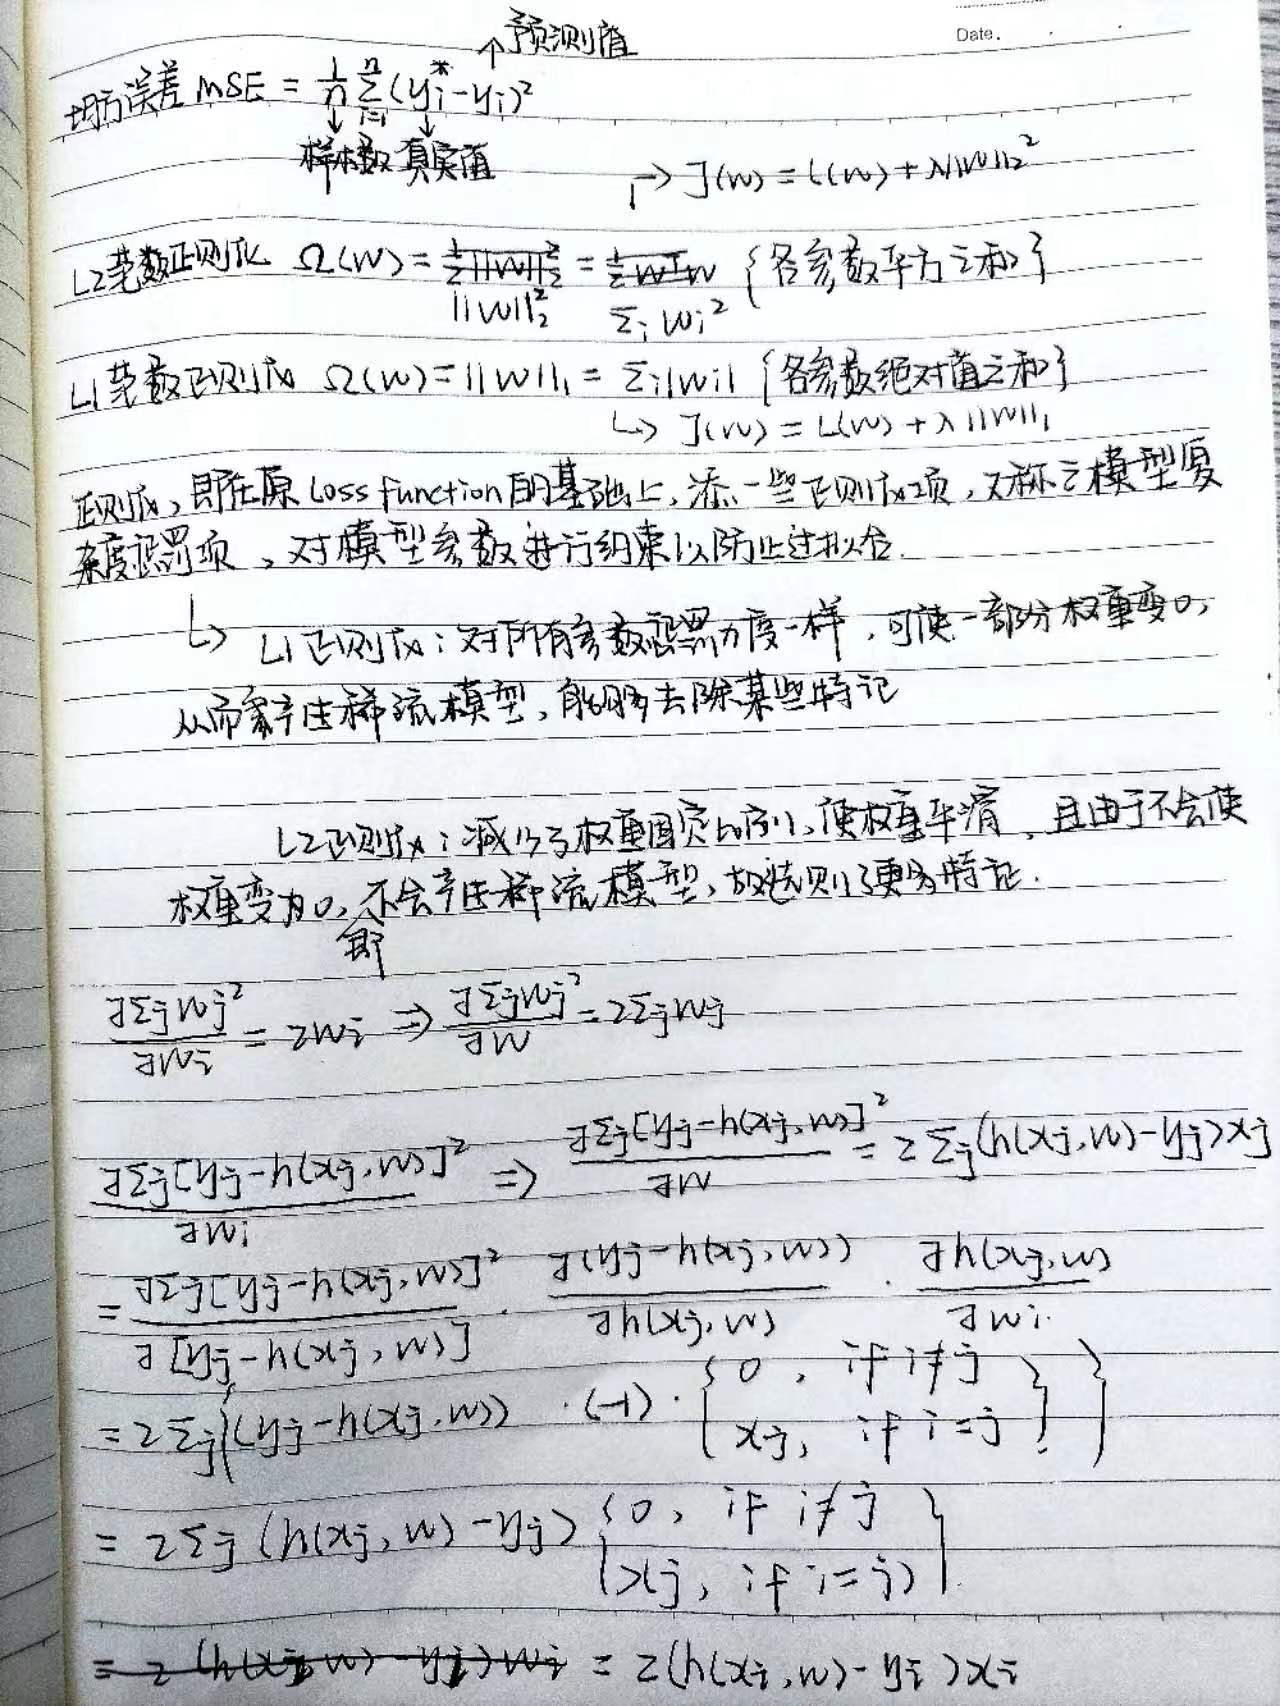 Date.
预测值
均方误差 MSE = 1/n Σ_{i=1}^{n} (y_i^* - y_i)²
样本数 真实值
→ J(w) = L(w) + λ||w||₂²
L2范数正则化 Ω(w) = ½||w||₂² = ½wᵀw {各参数平方之和}
||w||₂² Σ_i w_i²
L1范数正则化 Ω(w) = ||w||₁ = Σ_i|w_i| {各参数绝对值之和}
↳ J(w) = L(w) + λ||w||₁
正则化,即在原 Loss function 的基础上,添一些正则化项,又称之模型复
杂度惩罚项,对模型参数进行约束以防止过拟合.
↳ L1正则化:对所有参数惩罚力度一样,可使一部分权重变0,
从而产生稀流模型,能够去除某些特记
L2正则化:减少了权重固定比例,使权重平滑,且由于不会使
权重变为0,即不会产生稀流模型,故选则了更多特征.
∂Σ_j w_j² / ∂w_i = 2w_i ⇒ ∂Σ_j w_j² / ∂w = 2Σ_j w_j
∂Σ_j[y_j - h(x_j, w)]² / ∂w_i ⇒ ∂Σ_j[y_j - h(x_j, w)]² / ∂w = 2Σ_j(h(x_j, w) - y_j)x_j
= ∂Σ_j[y_j - h(x_j, w)]² / ∂[y_j - h(x_j, w)] · ∂(y_j - h(x_j, w)) / ∂h(x_j, w) · ∂h(x_j, w) / ∂w_i
= 2Σ_j{(y_j - h(x_j, w)) · (-1) · {0, if i≠j
x_j, if i=j}}
= 2Σ_j (h(x_j, w) - y_j) {0, if i≠j
x_j, if i=j}
= 2 (h(x_j, w) - y_j) w_i = 2(h(x_i, w) - y_i)x_i